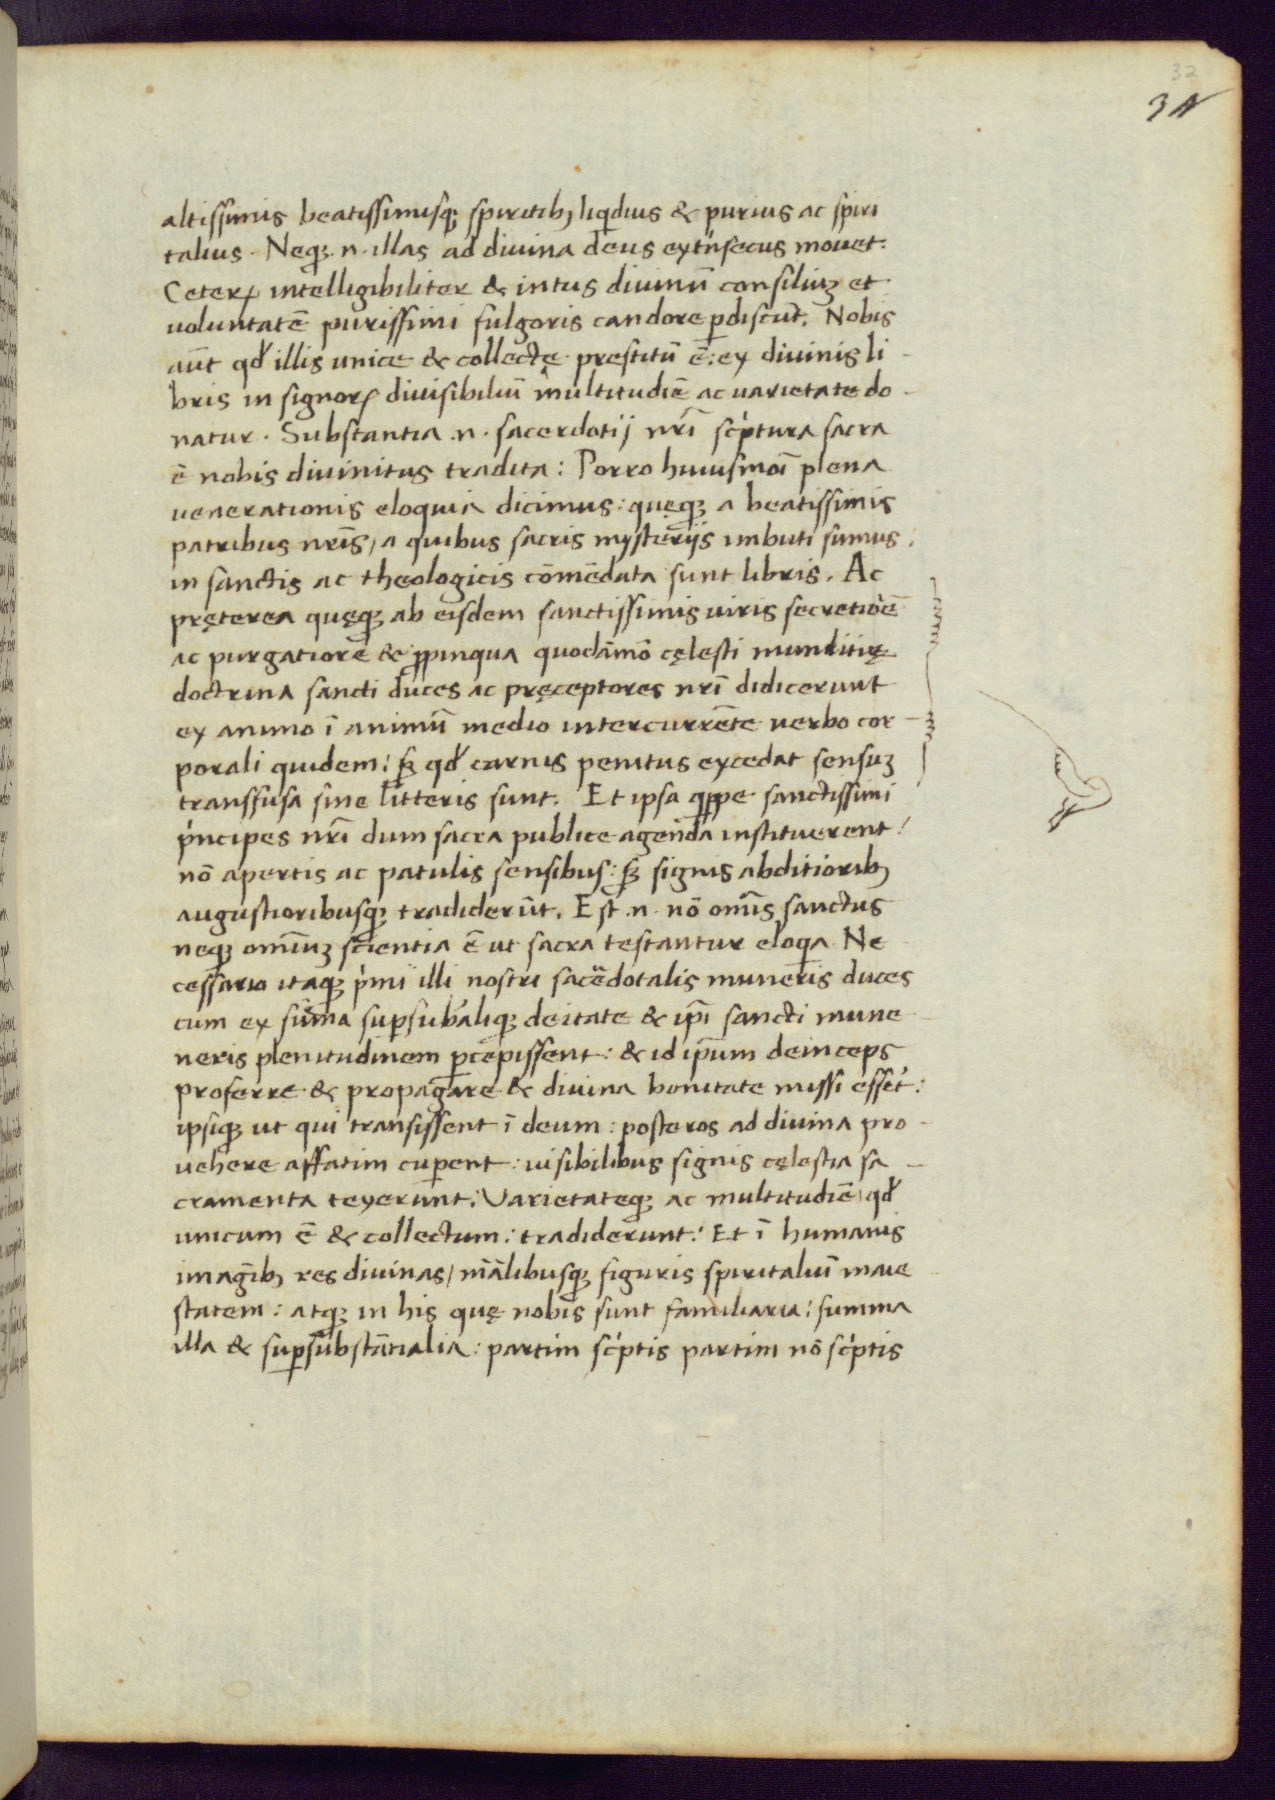 32
altissimis beatissimisqꝫ spiritibꝫ liq̇dius & purius ac spiri
talius. Neqꝫ .n. illas ad divina deus ext̓nsecus movet.
Ceterꝝ intelligibiliter & intus divinū consiliuꝫ et
voluntatē purissimi fulgoris candore ꝑdiscūt. Nobis
aūt qđ illis unice & collectę prestitū ē: ex divinis li
bris in signorꝝ divisibiliū multitudīe ac varietate do
natur. Substantia .n. sacerdotij nr̄i sc̓ptura sacra
ē nobis divinitus tradita: Porro huiusmōi plena
venerationis eloquia dicimus: quęqꝫ a beatissimis
patribus nr̄is, a quibus sacris mysteriis imbuti sumus:
in sanctis ac theologicis cōmēdata sunt libris. Ac
pręterea quęqꝫ ab eisdem sanctissimis viris secretiōe
ac purgatiore & ꝓpinqua quodāmō cęlesti munditię
doctrina sancti duces ac pręceptores nr̄i didicerunt
ex animo ī animū medio intercurrēte verbo cor
porali quidem: sꝫ qđ carnis penitus excedat sensuꝫ
transfusa sine litteris sunt. Et ipsa q̇ppe sanctissimi
p̓ncipes nr̄i dum sacra publice agenda instituerent:
nō apertis ac patulis sensibus: sꝫ signis abditioribꝫ
augustioribusqꝫ tradiderūt. Est .n. nō omīs sanctus
neqꝫ omīuꝫ scientia ē ut sacra testantur eloq̇a. Ne
cessario itaqꝫ p̓mi illi nostri sacēdotalis muneris duces
cum ex sūma suꝑsub̄aliqꝫ deitate & ip̄i sancti mune
neris plenitudinem ꝑcepissent: & id ip̄um deinceps
proferre & propagare & divina bonitate missi essēt:
ipsiqꝫ ut qui transissent ī deum: posteros ad divina pro
vehere affatim cuꝑent: visibilibus signis cęlestia sa
cramenta texerunt. Varietateqꝫ ac multitudīe, qđ
unicum ē & collectum: tradiderunt: Et ī humanis
imagībꝫ res divinas, mālibusqꝫ figuris spiritaliū maie
statem: atqꝫ in his quę nobis sunt familiaria: summa
illa & suꝑsubstātialia: partim sc̓ptis partim nō sc̓ptis